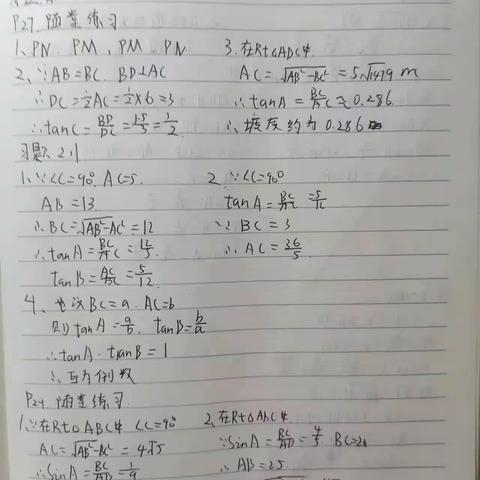 P27. 随堂练习
1、PN、PM、PM、PN
2、∵AB=BC. BD⊥AC
∴DC=½AC=½×6=3
∴tanC=BD/DC=1.5/3=1/2
3. 在Rt△ABC中
AC=√(AB²-BC²)=5√1479 m
∴tanA=BC/AC≈0.286
∴坡度约为0.286
习题2.1
1、∵∠C=90°, AC=5.
AB=13
∴BC=√(AB²-AC²)=12
∴tanA=BC/AC=12/5.
tanB=AC/BC=5/12.
2、∵∠C=90°
tanA=BC/AC=5/12
∵BC=3
∴AC=36/5.
4、设BC=a. AC=b
则tanA=a/b. tanB=b/a
∴tanA·tanB=1
∴互为倒数
随堂练习
1、∵在Rt△ABC中 ∠C=90°
AC=√(AB²-BC²)=4√5
∴sinA=BC/AB=1/9
2、在Rt△ABC中
∵sinA=BC/AB=4/5 BC=20
∴AB=25.